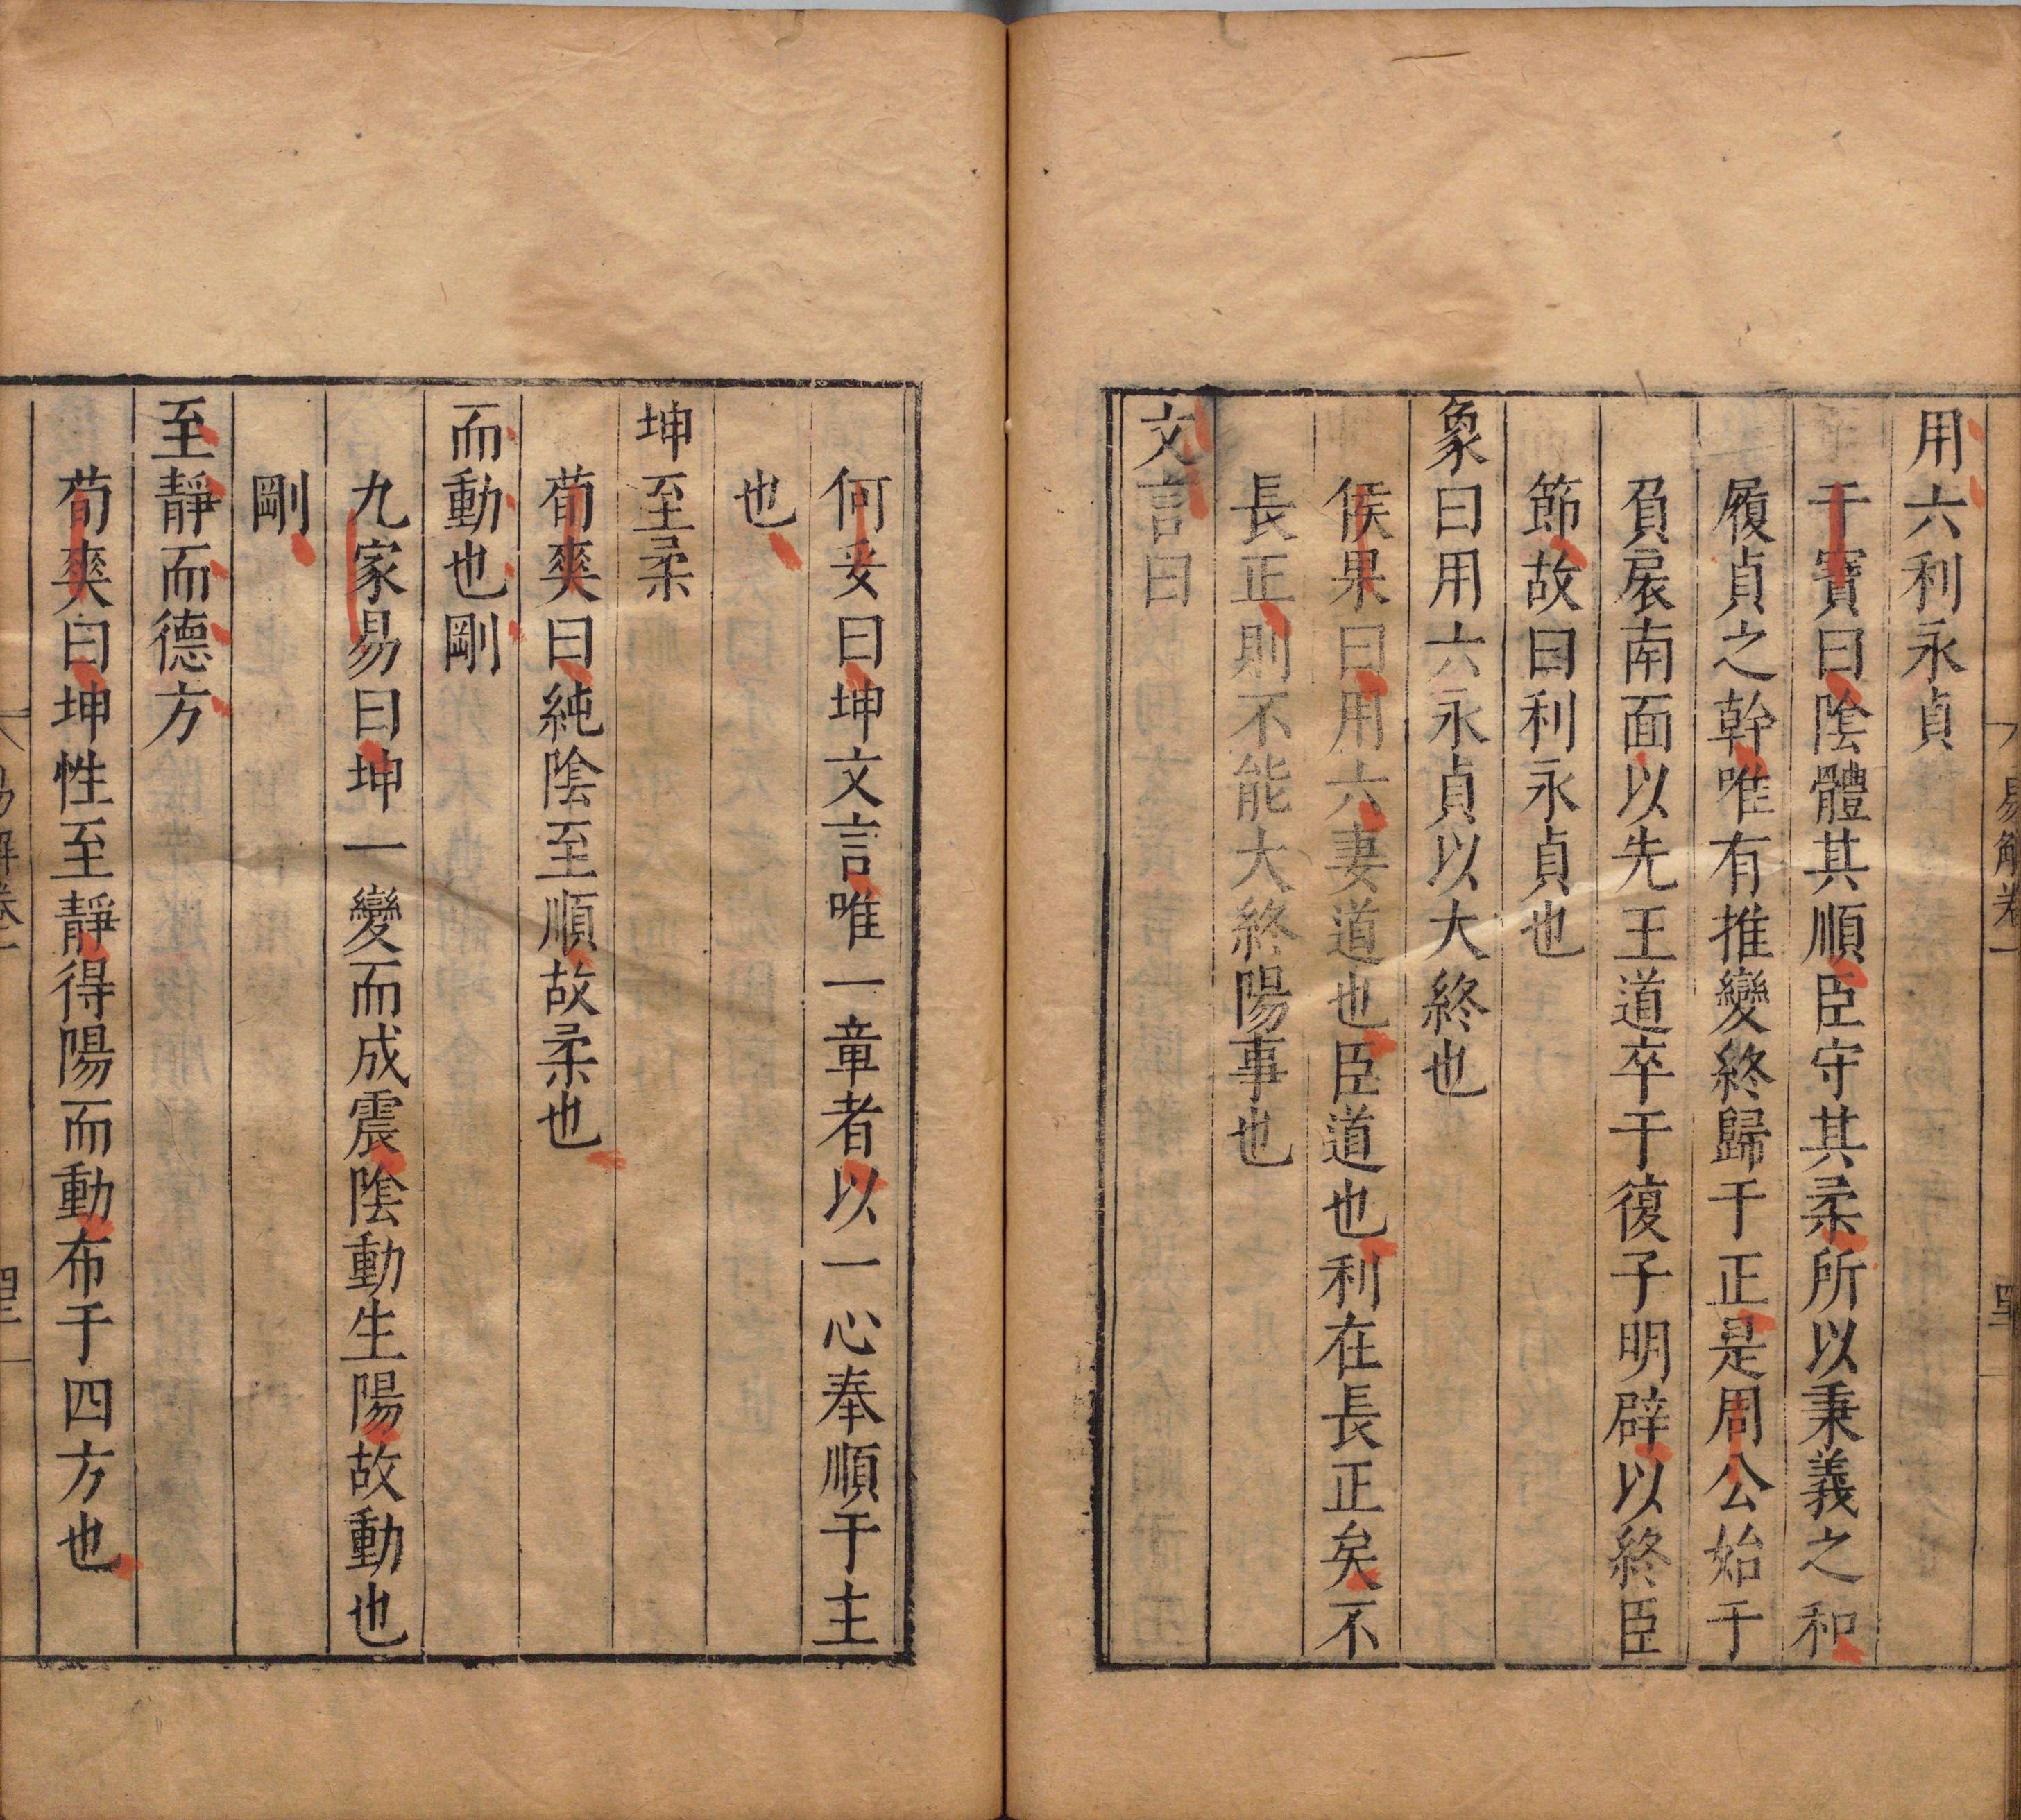 易解卷一
用六利永貞
干寶曰隂體其順臣守其柔所以秉義之和
履貞之幹唯有推變終歸于正是周公始于
負扆南面以先王道卒于復子明辟以終臣
節故曰利永貞也
象曰用六永貞以大終也
侯果曰用六妻道也臣道也利在長正矣不
長正則不能大終陽事也
文言曰
何妥曰坤文言唯一章者以一心奉順于主
也
坤至柔
荀爽曰純隂至順故柔也
而動也剛
九家易曰坤一變而成震隂動生陽故動也
剛
至靜而德方
荀爽曰坤性至靜得陽而動布于四方也
易解卷一